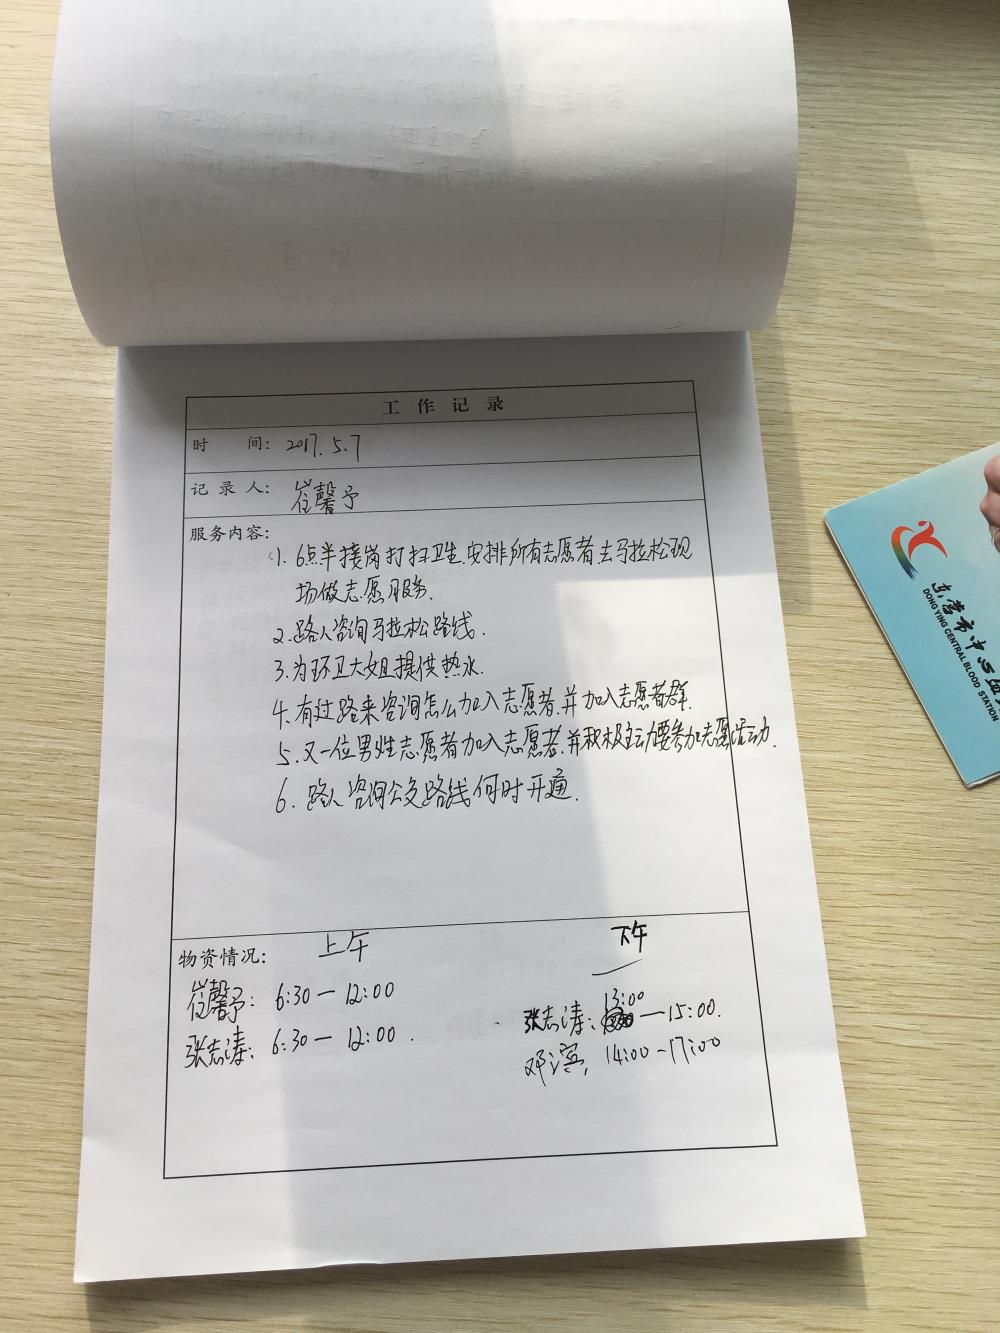 工作记录
时 间: 2017.5.7
记录人: 崔馨予
服务内容:
1. 6点半接岗打扫卫生.安排所有志愿者去马拉松现
场做志愿服务.
2.路人咨询马拉松路线.
3.为环卫大姐提供热水.
4.有过路来咨询怎么加入志愿者.并加入志愿者群.
5.又一位男性志愿者加入志愿者.并积极主动要参加志愿活动.
6.路人咨询公交路线何时开通.
物资情况: 上午 下午
崔馨予: 6:30—12:00
张志涛: 6:30—12:00. 张志涛: 13:00—15:00.
邓滨, 14:00-17:00
东营市中心血
DONGYING CENTRAL BLOOD STATION